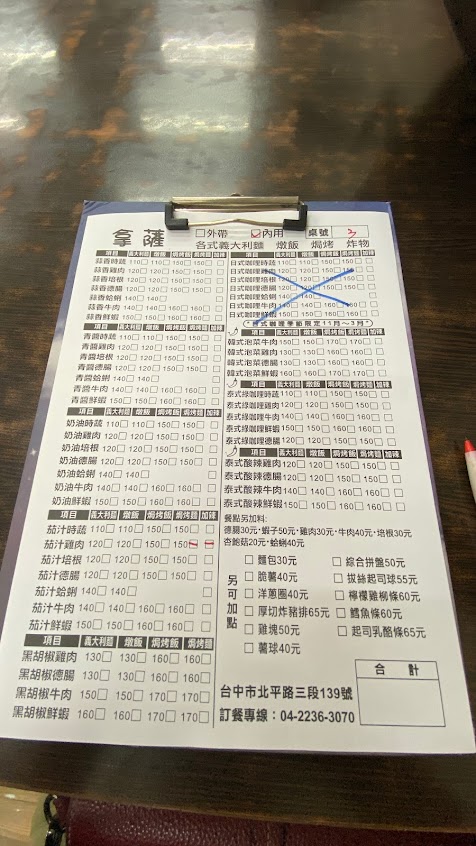 拿薩 □外帶 ☑內用 桌號 3
各式義大利麵 燉飯 焗烤 炸物
項目 義大利麵 燉飯 焗烤飯 焗烤麵 加辣
蒜香時蔬 110□ 110□ 150□ 150□ □
蒜香雞肉 120□ 120□ 150□ 150□ □
蒜香培根 120□ 120□ 150□ 150□ □
蒜香德腸 120□ 120□ 150□ 150□ □
蒜香蛤蜊 140□ 140□ □
蒜香牛肉 140□ 140□ 160□ 160□ □
蒜香鮮蝦 150□ 150□ 160□ 160□ □
項目 義大利麵 燉飯 焗烤飯 焗烤麵 加辣
青醬時蔬 110□ 110□ 150□ 150□ □
青醬雞肉 120□ 120□ 150□ 150□ □
青醬培根 120□ 120□ 150□ 150□ □
青醬德腸 120□ 120□ 150□ 150□ □
青醬蛤蜊 140□ 140□ □
青醬牛肉 140□ 140□ 160□ 160□ □
青醬鮮蝦 150□ 150□ 160□ 160□ □
項目 義大利麵 燉飯 焗烤飯 焗烤麵 加辣
奶油時蔬 110□ 110□ 150□ 150□ □
奶油雞肉 120□ 120□ 150□ 150□ □
奶油培根 120□ 120□ 150□ 150□ □
奶油德腸 120□ 120□ 150□ 150□ □
奶油蛤蜊 140□ 140□ □
奶油牛肉 140□ 140□ 160□ 160□ □
奶油鮮蝦 150□ 150□ 160□ 160□ □
項目 義大利麵 燉飯 焗烤飯 焗烤麵 加辣
茄汁時蔬 110□ 110□ 150□ 150□ □
茄汁雞肉 120□ 120□ 150□ 150□ □
茄汁培根 120□ 120□ 150□ 150□ □
茄汁德腸 120□ 120□ 150□ 150□ □
茄汁蛤蜊 140□ 140□ □
茄汁牛肉 140□ 140□ 160□ 160□ □
茄汁鮮蝦 150□ 150□ 160□ 160□ □
項目 義大利麵 燉飯 焗烤飯 焗烤麵
黑胡椒雞肉 130□ 130□ 160□ 160□
黑胡椒德腸 130□ 130□ 160□ 160□
黑胡椒牛肉 150□ 150□ 170□ 170□
黑胡椒鮮蝦 160□ 160□ 170□ 170□
項目 義大利麵 燉飯 焗烤飯 焗烤麵 加辣
日式咖哩時蔬 110□ 110□ 150□ 150□ □
日式咖哩雞肉 120□ 120□ 150□ 150□ □
日式咖哩培根 120□ 120□ 150□ 150□ □
日式咖哩德腸 120□ 120□ 150□ 150□ □
日式咖哩蛤蜊 140□ 140□ □
日式咖哩牛肉 140□ 140□ 160□ 160□ □
日式咖哩鮮蝦 150□ 150□ 160□ 160□ □
*日式咖哩季節限定11月～3月*
項目 義大利麵 燉飯 焗烤飯 焗烤麵
韓式泡菜牛肉 150□ 150□ 170□ 170□
韓式泡菜雞肉 130□ 130□ 160□ 160□
韓式泡菜德腸 130□ 130□ 160□ 160□
韓式泡菜鮮蝦 160□ 160□ 170□ 170□
項目 義大利麵 燉飯 焗烤飯 焗烤麵 加辣
泰式綠咖哩時蔬 110□ 110□ 150□ 150□ □
泰式綠咖哩雞肉 120□ 120□ 150□ 150□ □
泰式綠咖哩牛肉 140□ 140□ 160□ 160□ □
泰式綠咖哩鮮蝦 150□ 150□ 160□ 160□ □
泰式綠咖哩德腸 120□ 120□ 150□ 150□ □
項目 義大利麵 燉飯 焗烤飯 焗烤麵 加辣
泰式酸辣雞肉 120□ 120□ 150□ 150□ □
泰式酸辣德腸 120□ 120□ 150□ 150□ □
泰式酸辣牛肉 140□ 140□ 160□ 160□ □
泰式酸辣鮮蝦 150□ 150□ 160□ 160□ □
餐點另加料:
德腸30元,蝦子50元,雞肉30元,牛肉40元,培根30元
杏鮑菇20元,蛤蜊40元
另可加點
□ 麵包30元 □ 綜合拼盤50元
□ 脆薯40元 □ 拔絲起司球55元
□ 洋蔥圈40元 □ 檸檬雞柳條60元
□ 厚切炸豬排65元 □ 鱈魚條60元
□ 雞塊50元 □ 起司乳酪條65元
□ 薯球40元
合計
台中市北平路三段139號
訂餐專線：04-2236-3070